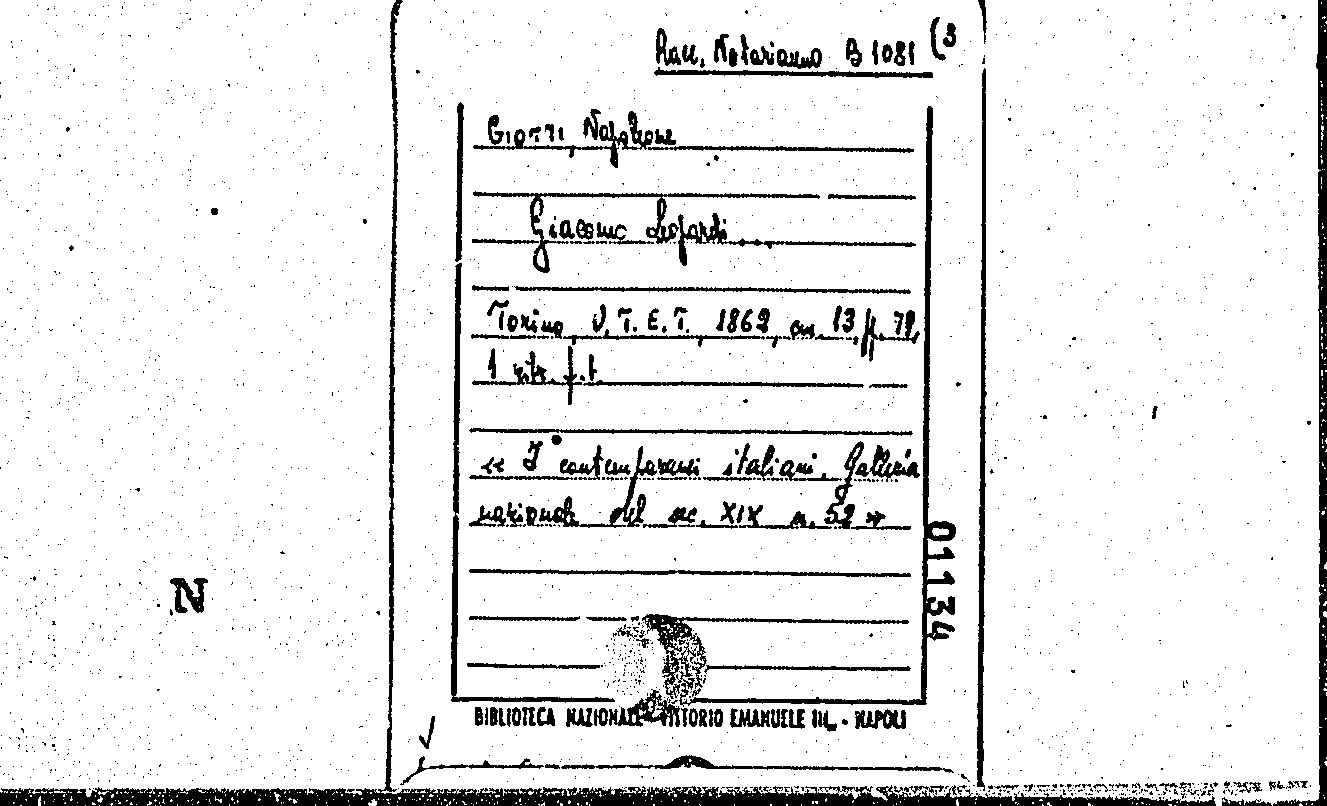 Racc. Notarianno B 1081 (3
Giotti, Napoleone
Giacomo Leopardi...
Torino, U.T.E.T., 1862, cm. 13, pp. 79,
1 ritr. f.t.
« I contemporanei italiani. Galleria
nazionale del sec. XIX n. 52 »
01134
N
BIBLIOTECA NAZIONALE VITTORIO EMANUELE III - NAPOLI